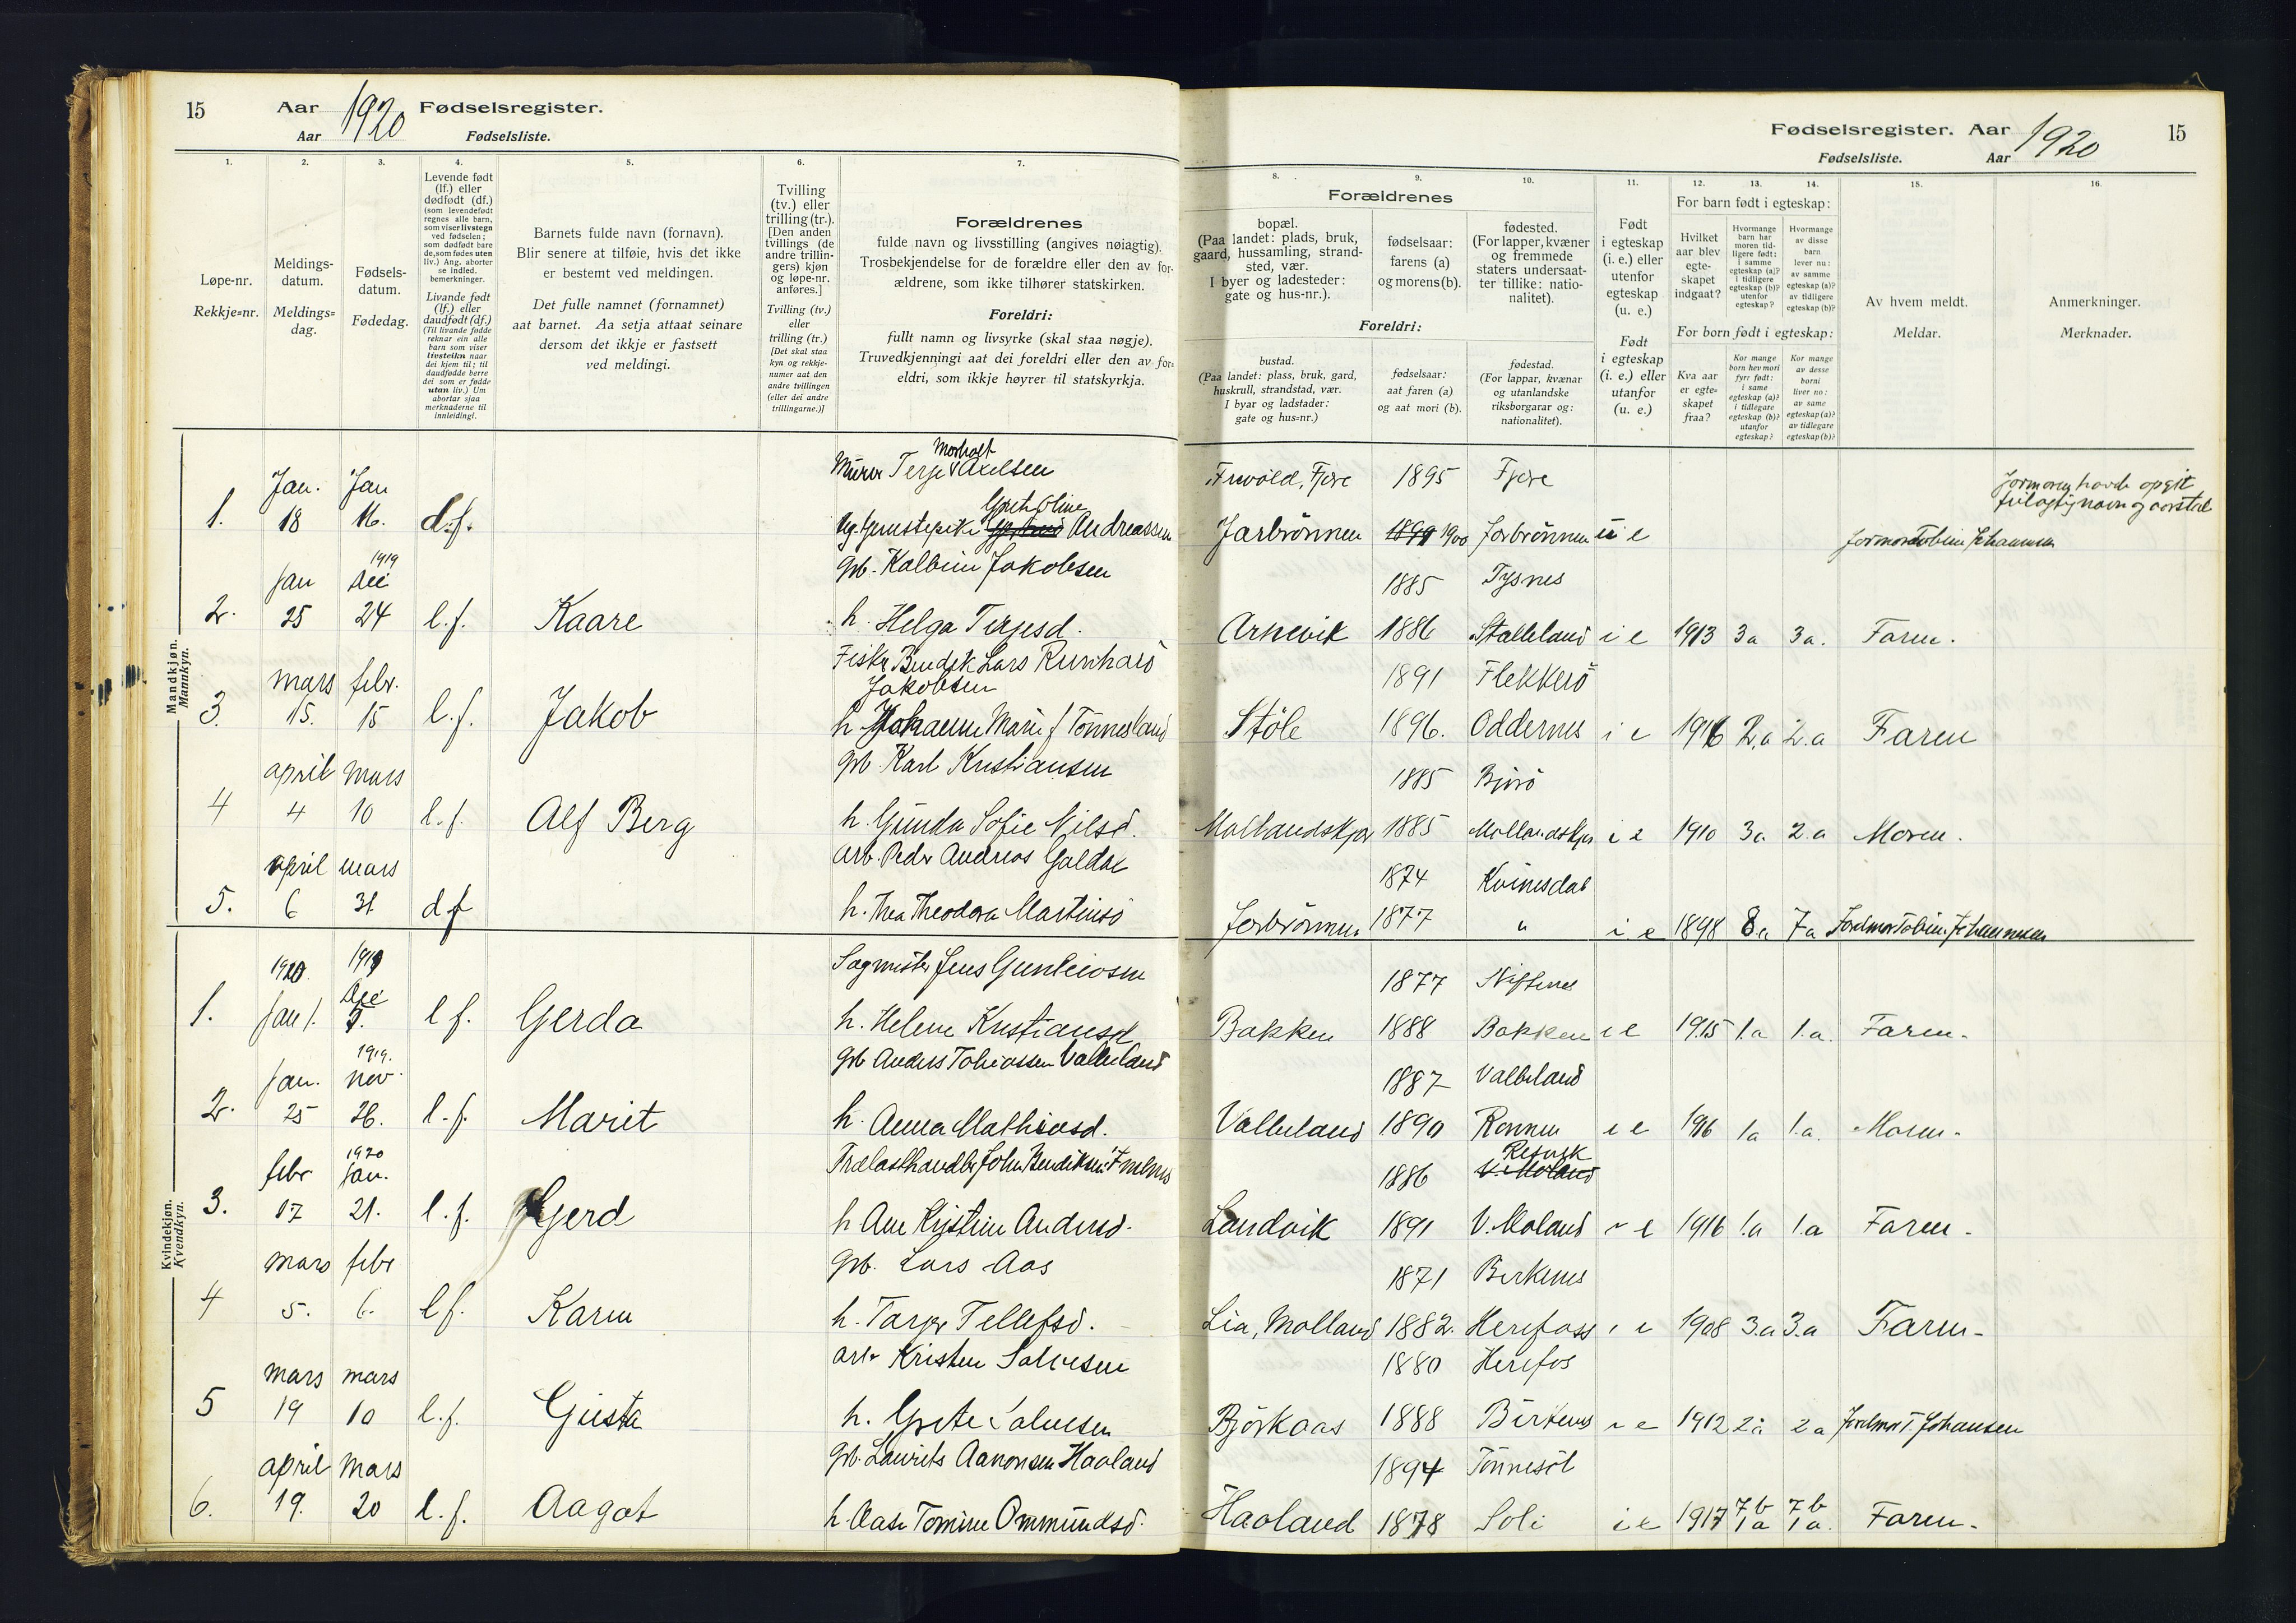 15 Aar 1920 Fødselsregister.
Aar Fødselsliste.
1. 2. 3. 4. 5. 6. 7.
Løpe-nr.
Rekkje-nr.
Meldings-
datum.
Meldings-
dag.
Fødsels-
datum.
Fødedag.
Levende født
(lf.) eller
dødfødt (df.)
(som levendefødt
regnes alle barn,
som viser livstegn
ved fødselen;
som dødfødt bare
de, som fødes uten
liv.) Ang. aborter
se indled.
bemerkninger.
Livande født
(lf.) eller
daudfødt (df.)
(Til livande fødde
reknar ein alle
barn som viser
livsteikn naar
dei kjem til; til
daudfødde berre
dei som er fødde
utan liv.) Um
abortar sjaa
merknaderne til
innleidingi.
Barnets fulde navn (fornavn).
Blir senere at tilføie, hvis det ikke
er bestemt ved meldingen.
Det fulle namnet (fornamnet)
aat barnet. Aa setja attaat seinare
dersom det ikkje er fastsett
ved meldingi.
Tvilling
(tv.) eller
trilling (tr.).
[Den anden
tvillings (de
andre trillin-
gers) kjøn
og løpe-nr.
anføres.]
Tvilling (tv.)
eller
trilling (tr.)
[Det skal staa
kyn og rekkje-
numer aat den
andre tvillingen
(eller dei andre
trillingarne.)]
Forældrenes
fulde navn og livsstilling (angives nøiagtig).
Trosbekjendelse for de forældre eller den av for-
ældrene, som ikke tilhører statskirken.
Foreldri:
fullt namn og livsyrke (skal staa nøgje).
Truvedkjenningi aat dei foreldri eller den av for-
eldri, som ikkje høyrer til statskyrkja.
Mandkjøn.
Mannkyn.
Morholt
Murer Terje Axelsen
Jan. Jan
Grete Oline
1. 18 16. d.f. Andreassen
1919
Jan Dec gb. Kalbein Jakobsen
2. 25 24 l.f. Kaare h. Helga Terjesd.
Fisker Bendik Lars Reinhard
mars febr. Jakobsen
3. 15. 15 l.f. Jakob h. Johanne Marie f Tønnesland
april mars gb Karl Kristiansen
4 4 10 l.f. Alf Berg h. Gunda Sofie Nilsd.
april mars arb. Peder Andreas Galdal
5. 6 31 df h. Thea Theodora Martinsd
Kvindekjøn.
Kvendkyn.
1920 1919 Sagmester Jens Gunleiksen
Dec
1. Jan 1. 5. l f. Gerda h. Helene Kristiansd
1919.
Jan. nov. gb Anders Tobiassen Valleland
2. 25 26. l.f. Marit h. Anna Mathiasd.
1920
febr Jan. Trælasthandler John Bendiksen
3. 17 21. l.f. Gerd h Ane Kristine Andersd.
mars febr gb. Lars Aas
4 5. 6. l f. Karen h. Tarjer Tellefsd.
mars mars arb Kristen Salvesen
5 19 10 l.f. Gusta h. Grete Salvesen
april mars gb. Laurits Aanonsen Haaland
6. 19. 20 l.f. Aagot h. Aase Tomine Ommundsd.
Fødselsregister. Aar 1920 15
Fødselsliste. Aar
8. 9. 10. 11. 12. 13. 14. 15. 16.
Forældrenes
bopæl.
(Paa landet: plads, bruk,
gaard, hussamling, strand-
sted, vær.
I byer og ladesteder:
gate og hus-nr.).
fødselsaar:
farens (a)
og morens (b).
fødested.
(For lapper, kvæner
og fremmede
staters undersaat-
ter tillike: natio-
nalitet).
Foreldri:
bustad.
(Paa landet: plass, bruk, gard,
huskrull, strandstad, vær.
I byar og ladstader:
gate og hus-nr.)
fødselsaar:
aat faren (a)
og aat mori (b).
fødestad.
(For lappar, kvænar
og utanlandske
riksborgarar og:
nationalitet).
Født
i egteskap
(i. e.) eller
utenfor
egteskap
(u. e.)
Født
i egteskap
(i. e.) eller
utanfor
(u. e.)
For barn født i egteskap:
Hvilket
aar blev
egte-
skapet
indgaat?
Hvormange
barn har
moren tid-
ligere født:
i samme
egteskap (a)?
i tidligere
egteskap (b)?
utenfor
egteskap?
Hvormange
av disse
barn
lever nu:
av samme
egteskap (a)?
av tidligere
egteskap (b)?
For born født i egteskap:
Kva aar
er egte-
skapet
fraa?
Kor mange
born hev mori
fyrr født:
i same
egteskap (a)?
i tidlegare
egteskap (b)?
utanfor
egteskap?
Kor mange
av desse
borni
liver no:
av same
egteskap (a)?
av tidlegare
egteskap (b)?
Av hvem meldt.
Meldar.
Anmerkninger.
Merknader.
Frivold, Fjære 1895 Fjære
Jormoren havde opgit
feilagtig navn og aarstal
Jorbrönnen 1899 1900 Jorbrönnen u e Jormor Tobine Johannesen
1885 Tysnes
Arnevik 1886 Stalleland i e 1913 3a 3a. Faren.
1891 Flekkerö
Støle 1896. Oddernes i e 1916 2.a 2.a Faren
1885
Mollandskjær 1885 Mollandskjær i e 1910 3a 2.a Moren.
1874 Kvinesdal
Jorbrönnen 1877 " i e 1898 8.a 7a Jordmor Tobine Johannesen
1877
Bakken 1888 Bakken i e 1915 1.a 1.a. Faren.
1887 Valleland
Valleland 1890 i e 1916 1a 1.a. Moren.
Resvik
1886 V. Moland
Landvik 1891 V. Moland i e 1916 1.a 1.a Faren.
1871 Birkenes
Lia, Molland 1882. Herefoss i e 1908 3.a 3.a Faren.
1880 Herefos
Björkaas 1888 Birkenes i e 1912 2a 2a Jordmor T. Johansen
1894 Tönnesöl
7b 7b
Haaland 1878 Soli i e 1917 1a 1a. Faren.